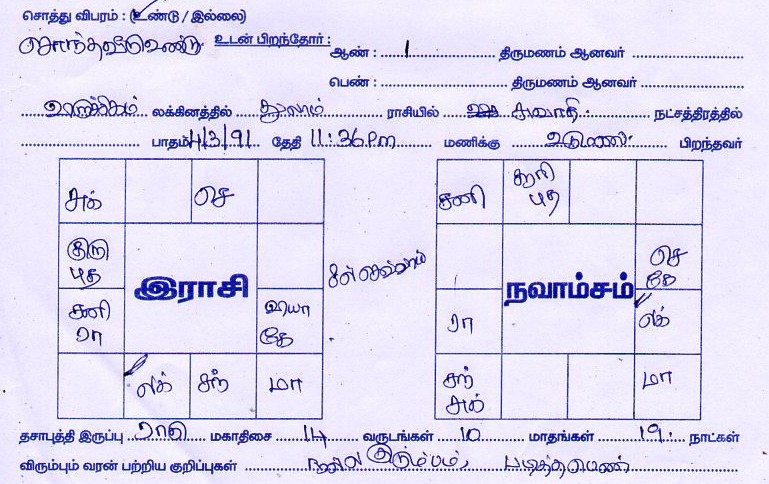 சொத்து விபரம் : (உண்டு / இல்லை)
சொந்தவீடு உண்டு உடன் பிறந்தோர் : ஆண் : 1 திருமணம் ஆனவர்
பெண் : திருமணம் ஆனவர்
லக்கினத்தில் துலாம் ராசியில் சுவாதி நட்சத்திரத்தில்
பாதம் 4/3/91 தேதி 11:36 Pm மணிக்கு உடுமலை பிறந்தவர்
சுக் செ
குரு
புத
இராசி
சனி
ரா
வியா
கே
லக் சந் மா
சனி சூரி
புத
செ
கே
நவாம்சம்
ரா லக்
சந்
சுக்
மா
தசாபுத்தி இருப்பு ராகு மகாதிசை 14 வருடங்கள் 10 மாதங்கள் 19 நாட்கள்
விரும்பும் வரன் பற்றிய குறிப்புகள் நல்ல குடும்பம், படித்த பெண்